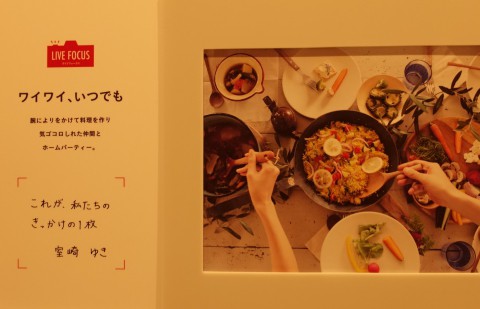 LIVE FOCUS
ワイワイ、いつでも
腕によりをかけて料理を作り
気ゴコロしれた仲間と
ホームパーティー。
これが、私たちの
きっかけの1枚
室崎 ゆき